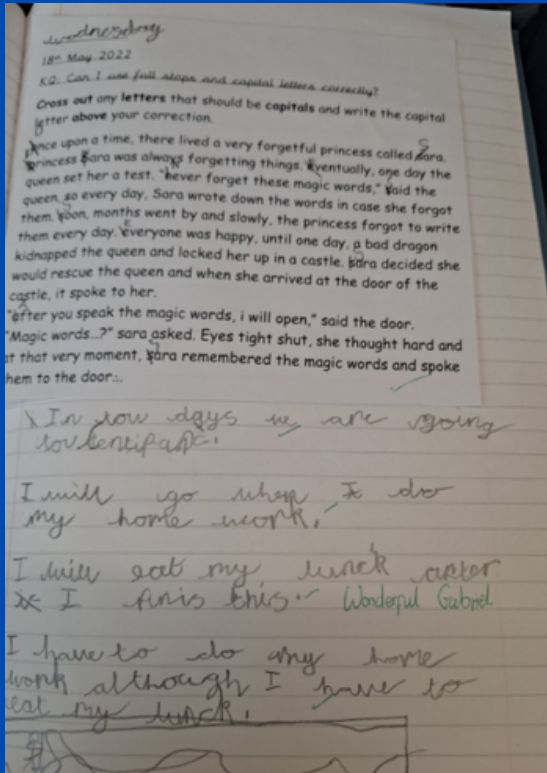 wodnesday
18th May 2022
KQ: Can I use full stops and capital letters correctly?
Cross out any letters that should be capitals and write the capital
letter above your correction.
once upon a time, there lived a very forgetful princess called sara.
princess sara was always forgetting things. eventually, one day the
queen set her a test. "never forget these magic words," said the
queen, so every day, Sara wrote down the words in case she forgot
them. soon, months went by and slowly, the princess forgot to write
them every day. everyone was happy, until one day, a bad dragon
kidnapped the queen and locked her up in a castle. sara decided she
would rescue the queen and when she arrived at the door of the
castle, it spoke to her.
"after you speak the magic words, i will open," said the door.
"Magic words...?" sara asked. Eyes tight shut, she thought hard and
at that very moment, sara remembered the magic words and spoke
hem to the door...
In days we are going
I will go when I do
my home work.
I will eat my lunck after
I finis this. Wonderful Gabriel
I have to do my home
work although I have to
eat my lunck.